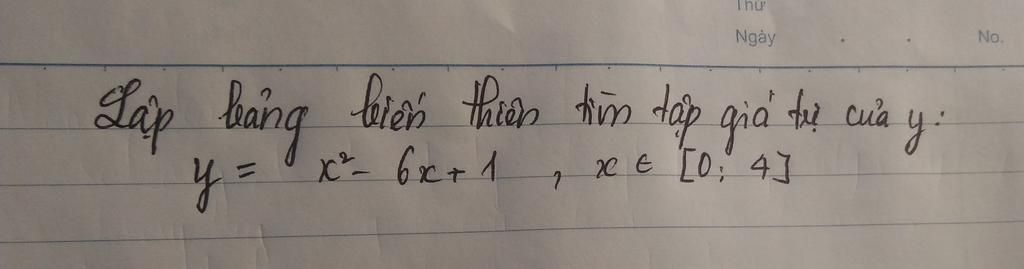 Thứ
Ngày . . No.
Lập bảng biến thiên tìm tập giá trị của y:
y = x² - 6x + 1 , x ∈ [0; 4]